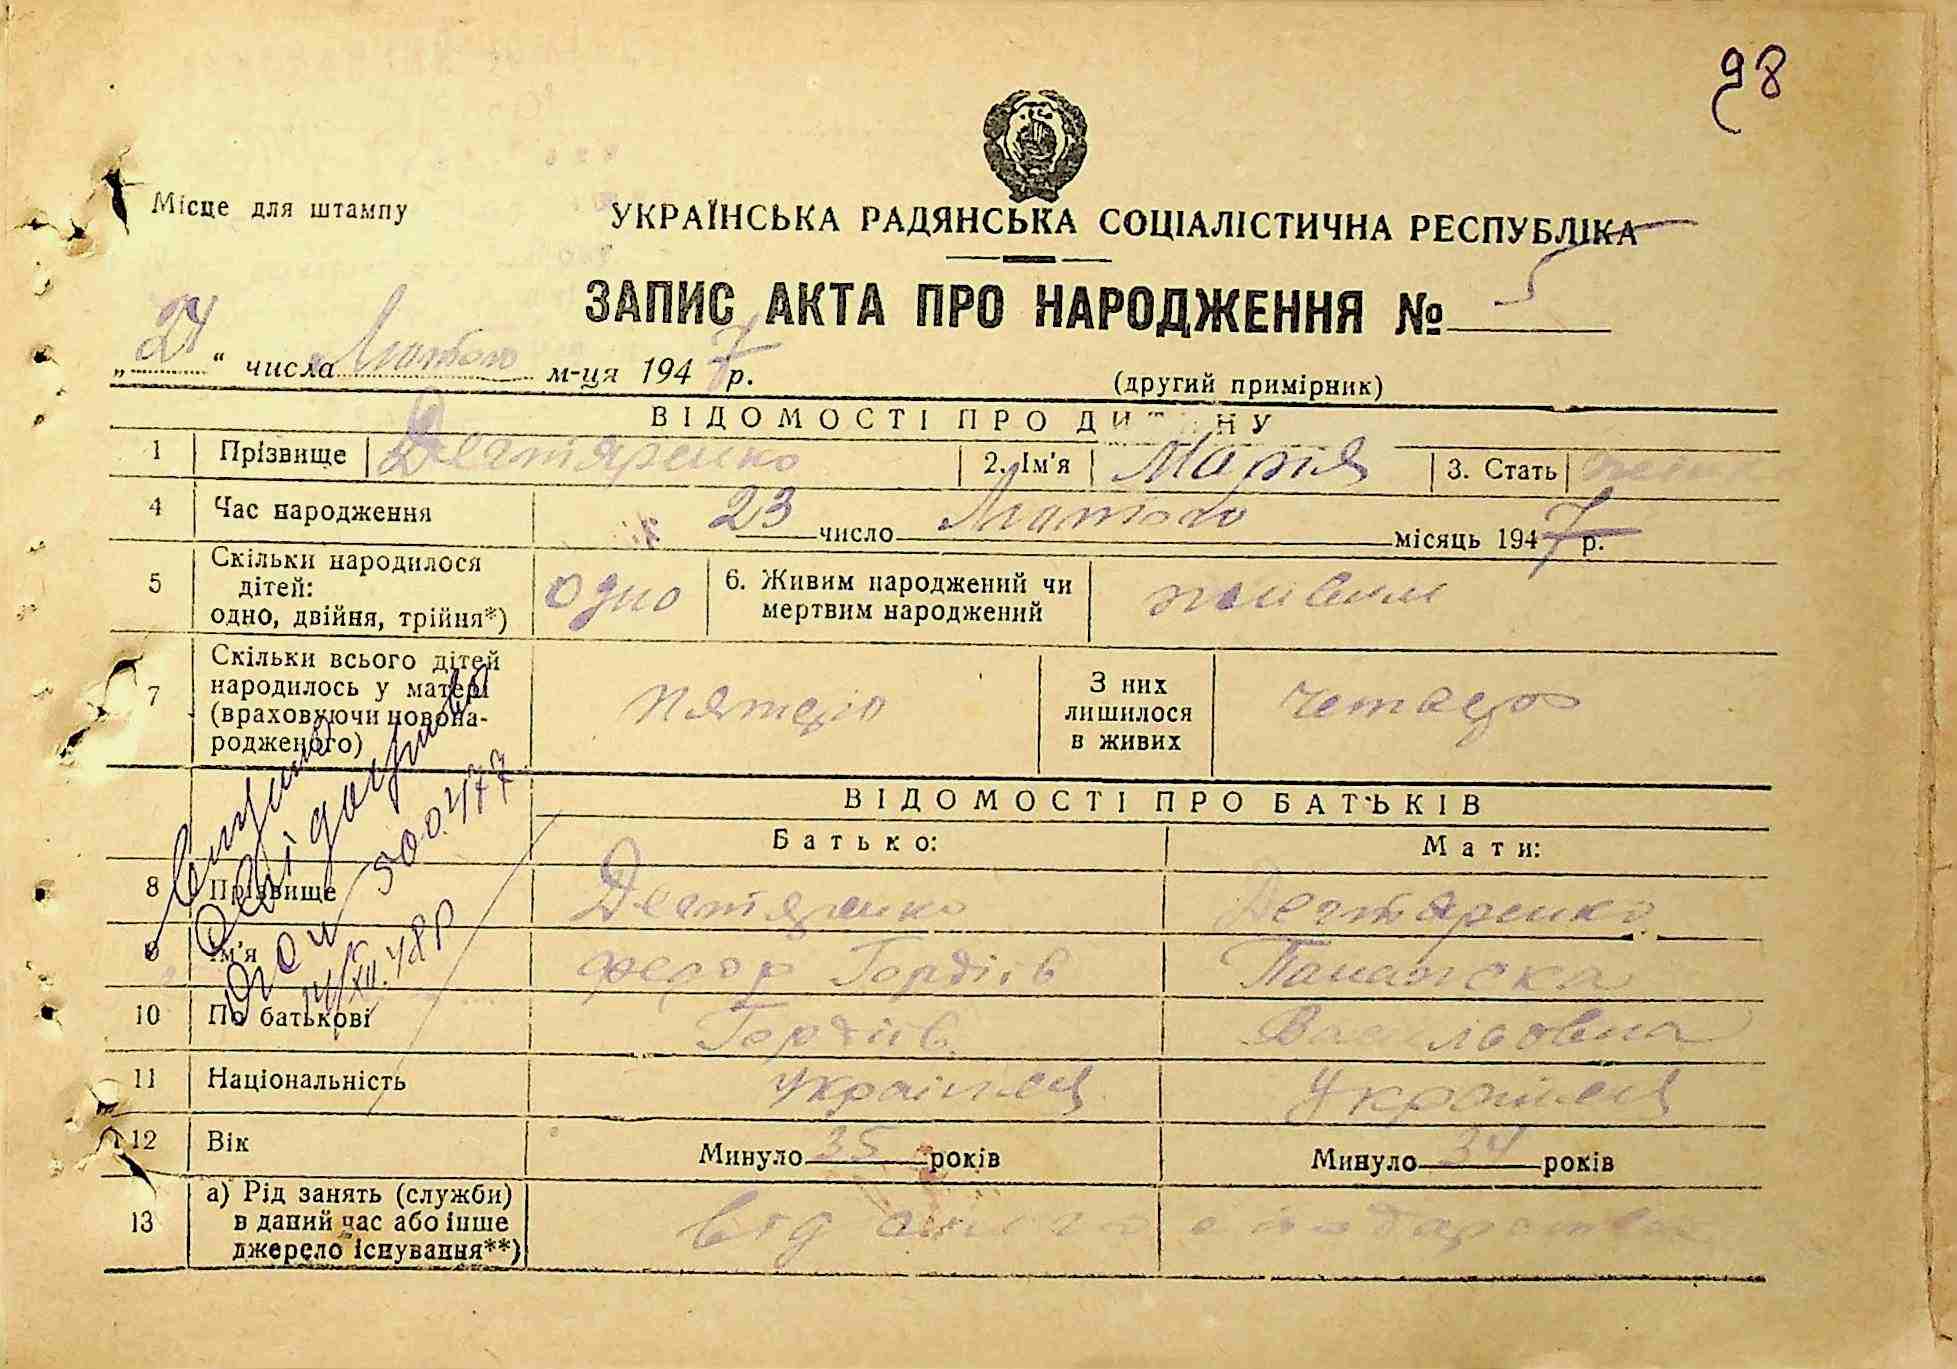 98
Місце для штампу
УКРАЇНСЬКА РАДЯНСЬКА СОЦІАЛІСТИЧНА РЕСПУБЛІКА
ЗАПИС АКТА ПРО НАРОДЖЕННЯ № 5
„24“ числа Лютого м-ця 1947 р.
(другий примірник)
ВІДОМОСТІ ПРО ДИТИНУ
1 Прізвище Дегтяренко 2. Ім'я Марія 3. Стать
4 Час народження 23 число Лютого місяць 1947 р.
5 Скільки народилося дітей: одно, двійня, трійня*) одно 6. Живим народжений чи мертвим народжений живим
7 Скільки всього дітей народилось у матері (враховуючи новона-родженого) пятеро З них лишилося в живих четверо
ВІДОМОСТІ ПРО БАТЬКІВ
Батько: Мати:
8 Прізвище Дегтяренко Дегтяренко
9 Ім'я Федор Гордіїв Панажка
10 По батькові Гордіїв Васильовна
11 Національність Українец Українец
12 Вік Минуло 35 років Минуло 34 років
13 а) Рід занять (служби) в даний час або інше джерело існування**) від сільського господарства
500477